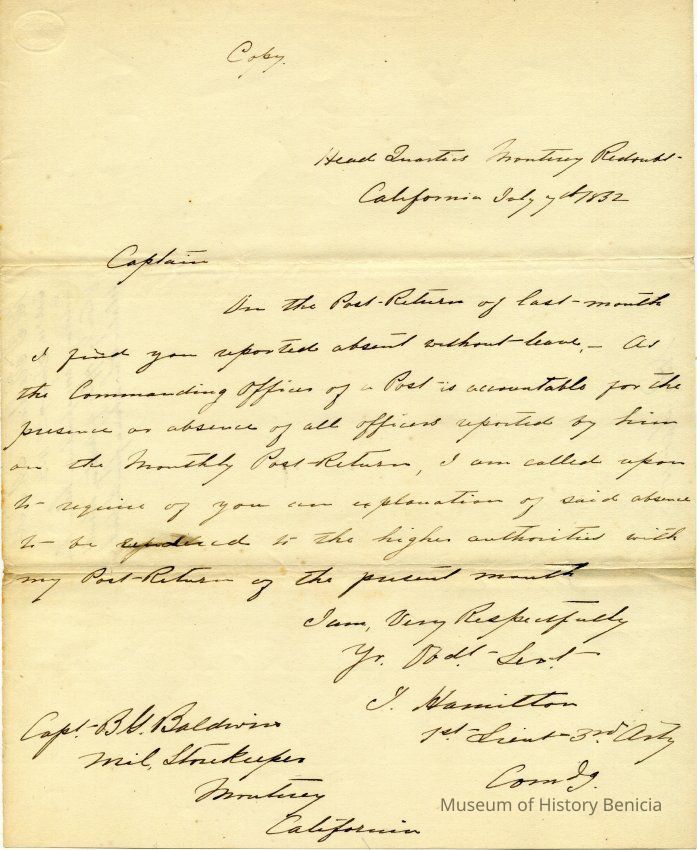 Copy.
Head Quarters Monterey Redoubt
California July 7th 1852
Captain
On the Post-Return of last-month
I find you reported absent without-leave. – As
the Commanding Officer of a Post is accountable for the
presence or absence of all officers reported by him
on the Monthly Post-Return, I am called upon
to require of you an explanation of said absence
to be rendered to the higher authorities with
my Post-Return of the present month
I am, Very Respectfully
Yr. Obdt. Servt.
J. Hamilton
1st Lieut 3rd Arty
Comdg.
Capt. B. G. Baldwin
Mil. Storekeeper
Monterey
California
Museum of History Benicia